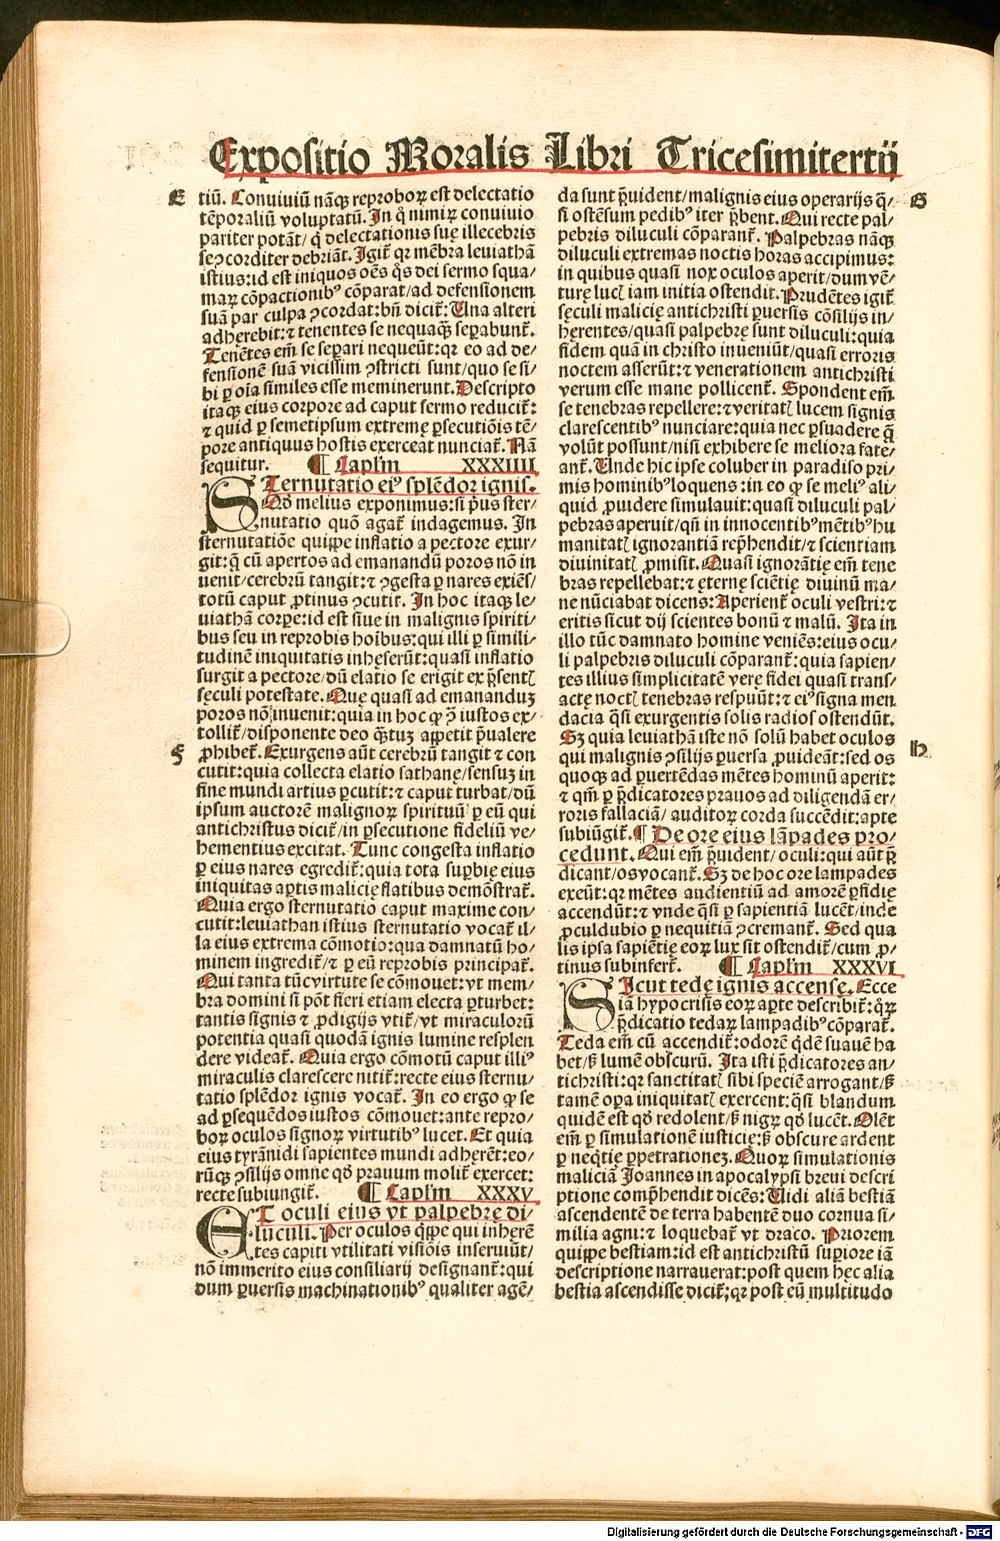 Expositio Moralis Libri Tricesimitertij
E
tiũ. Conuiuiũ nãqꝫ reproboꝝ est delectatio
tẽporaliũ voluptatũ. In q̊ nimiꝝ conuiuio
pariter potãt/ q̊ delectationis suę illecebris
seꝯcorditer debriãt. Igit̃ qꝛ mẽbra leuiathã
istius: id est iniquos oẽs q̊s dei sermo squa/
maꝝ cõpactionibꝰ cõparat/ad defensionem
suã par culpa ꝯcordat: bñ dicit̃: Una alteri
adherebit: ⁊ tenentes se nequaqꝫ seꝑabunt̃.
Tenẽtes em̃ se seꝑari nequeũt: qꝛ eo ad de/
fensionẽ suã vicissim ꝯstricti sunt/ quo se si/
bi ꝑ oĩa similes esse meminerunt. Descripto
itaqꝫ eius corpore ad caput sermo reducit̃:
⁊ quid ꝑ semetipsum extremę ꝑsecutiõis tẽ/
pore antiquus hostis exerceat nunciat̃. Nã
sequitur. ¶ Capl'm XXXIIII
STernutatio eiꝰ splẽdor ignis.
Qḋ melius exponimus: si p̃us ster/
nutatio quõ agat̃ indagemus. In
sternutatiõe quippe inflatio a pectore exur/
git: q̃ cũ apertos ad emanandũ poros nõ in
uenit/ cerebrũ tangit: ⁊ ꝯgesta ꝑ nares exiẽs/
totũ caput ꝓtinus ꝯcutit. In hoc itaqꝫ le/
uiathã corpe: id est siue in malignis spiriti/
bus seu in reprobis hoibus: qui illi ꝑ simili/
tudinẽ iniquitatis inhęserũt: quasi inflatio
surgit a pectore/ dũ elatio se erigit ex p̃sentꝭ
sęculi potestate. Quę quasi ad emanandum
poros nõ inuenit: quia in hoc ꝙ ꝯ̃ iustos ex/
tollit̃/ disponente deo q̃tuꝫ appetit p̃ualere
F
ꝓhibet̃. Exurgens aũt cerebrũ tangit ⁊ con
cutit: quia collecta elatio sathanę/ sensuꝫ in
fine mundi artius ꝑcutit: ⁊ caput turbat/ dũ
ipsum auctorẽ malignoꝝ spirituũ ꝑ eũ qui
antichristus dicit̃/ in ꝑsecutione fideliũ ve/
hementius excitat. Tunc congesta inflatio
ꝑ eius nares egredit̃: quia tota suꝑbię eius
iniquitas aꝑtis malicię flatibus demõstrat̃.
Quia ergo sternutatio caput maxime con/
cutit: leuiathan istius sternutatio vocat̃ il/
la eius extrema cõmotio: qua damnatũ ho/
minem ingredit̃/ ⁊ ꝑ eũ reprobis principat̃.
Qui tanta tũc virtute se cõmouet: vt mem/
bra domini si põt fieri etiam electa ꝑturbet:
tantis signis ⁊ ꝓdigijs vtit̃/ vt miraculorũ
potentia quasi quodã ignis lumine resplen
dere videat̃. Quia ergo cõmotũ caput illiꝰ
miraculis clarescere nitit̃: recte eius sternu/
tatio splẽdor ignis vocat̃. In eo ergo ꝙ se
ad ꝑsequẽdos iustos cõmouet: ante repro/
boꝝ oculos signoꝝ virtutibꝰ lucet. Et quia
eius tyrãnidi sapientes mundi adherẽt: eo/
rũqꝫ ꝯsilijs omne qḋ prauum molit̃ exercet:
recte subiungit̃. ¶ Capl'm XXXV
ET oculi eius vt palpebrę di/
luculi. Per oculos q̃ppe qui inherẽ
tes capiti vtilitati visiõis inseruiũt/
nõ immerito eius consiliarij designant̃: qui
dum ꝑuersis machinationibꝰ qualiter agẽ/
da sunt p̃uident/ malignis eius operarijs q̃/
G
si ostẽsum pedibꝰ iter p̃bent. Qui recte pal/
pebris diluculi cõparant̃. Palpebras nãqꝫ
diluculi extremas noctis horas accipimus:
in quibus quasi nox oculos aperit/ dum vẽ/
turę lucꝭ iam initia ostendit. Prudẽtes igit̃
sęculi malicię antichristi ꝑuersis cõsilijs in/
hęrentes/ quasi palpebrę sunt diluculi: quia
fidem quã in christo inueniũt/ quasi erroris
noctem asserũt: ⁊ venerationem antichristi
verum esse mane pollicent̃. Spondent em̃
se tenebras repellere: ⁊ veritatꝭ lucem signis
clarescentibꝰ nunciare: quia nec ꝑsuadere q̃
volũt possunt/ nisi exhibere se meliora fate/
ant̃. Unde hic ipse coluber in paradiso pri/
mis hominibꝰ loquens: in eo ꝙ se meliꝰ ali/
quid ꝓuidere simulauit: quasi diluculi pal/
pebras aperuit/ qñ in innocentibꝰ mẽtibꝰ hu
manitatꝭ ignorantiã rep̃hendit/ ⁊ scientiam
diuinitatꝭ ꝓmisit. Quasi ignorãtię em̃ tene
bras repellebat: ⁊ eternę sciẽtię diuinũ ma/
ne nũciabat dicens: Aperient̃ oculi vestri: ⁊
eritis sicut dij scientes bonũ ⁊ malũ. Ita in
illo tũc damnato homine veniẽs: eius ocu/
li palpebris diluculi cõparant̃: quia sapien/
tes illius simplicitatẽ verę fidei quasi trans/
actę noctꝭ tenebras respuũt: ⁊ eiꝰ signa men
dacia q̃si exurgentis solis radios ostendũt.
H
Sꝫ quia leuiathã iste nõ solũ habet oculos
qui malignis ꝯsilijs ꝑuersa ꝓuideãt: sed os
quoqꝫ ad ꝑuertẽdas mẽtes hominũ aperit:
⁊ qm̃ ꝑ p̃dicatores prauos ad diligendã er/
roris fallaciã/ auditoꝝ corda succẽdit: apte
subiũgit̃. ¶ De ore eius lãpades pro/
cedunt. Qui em̃ p̃uident/ oculi: qui aũt p̃
dicant/ os vocant̃. Sꝫ de hoc ore lampades
exeũt: qꝛ mẽtes audientiũ ad amorẽ ꝑfidię
accendũt: ⁊ vnde q̃si ꝑ sapientiã lucẽt/ inde
ꝓculdubio ꝑ nequitiã ꝯcremant̃. Sed qua
lis ipsa sapiẽtię eoꝝ lux sit ostendit̃/ cum ꝓ/
tinus subinfert̃. ¶ Capl'm XXXVI
SIcut tedę ignis accensę. Ecce
iã hypocrisis eoꝝ aꝑte describit̃: q̃ꝝ
p̃dicatio tedaꝝ lampadibꝰ cõparat̃.
Teda em̃ cũ accendit̃: odorẽ q̃dẽ suauẽ ha
bet/ ß lumẽ obscurũ. Ita isti p̃dicatores an/
tichristi: qꝛ sanctitatꝭ sibi speciẽ arrogant/ ß
tamẽ oꝑa iniquitatꝭ exercent: q̃si blandum
quidẽ est qḋ redolent/ ß nigꝝ qḋ lucẽt. Olẽt
em̃ ꝑ simulationẽ iusticię: ß obscure ardent
ꝑ neq̃tię ꝑpetrationeꝫ. Quoꝝ simulationis
maliciã Joannes in apocalypsi breui descri
ptione comp̃hendit dicẽs: Uidi aliã bestiã
ascendentẽ de terra habentẽ duo cornua si/
milia agni: ⁊ loquebat̃ vt draco. Priorem
quippe bestiam: id est antichristũ suꝑiore iã
descriptione narrauerat: post quem hęc alia
bestia ascendisse dicit̃: qꝛ post eũ multitudo
Digitalisierung gefördert durch die Deutsche Forschungsgemeinschaft - DFG